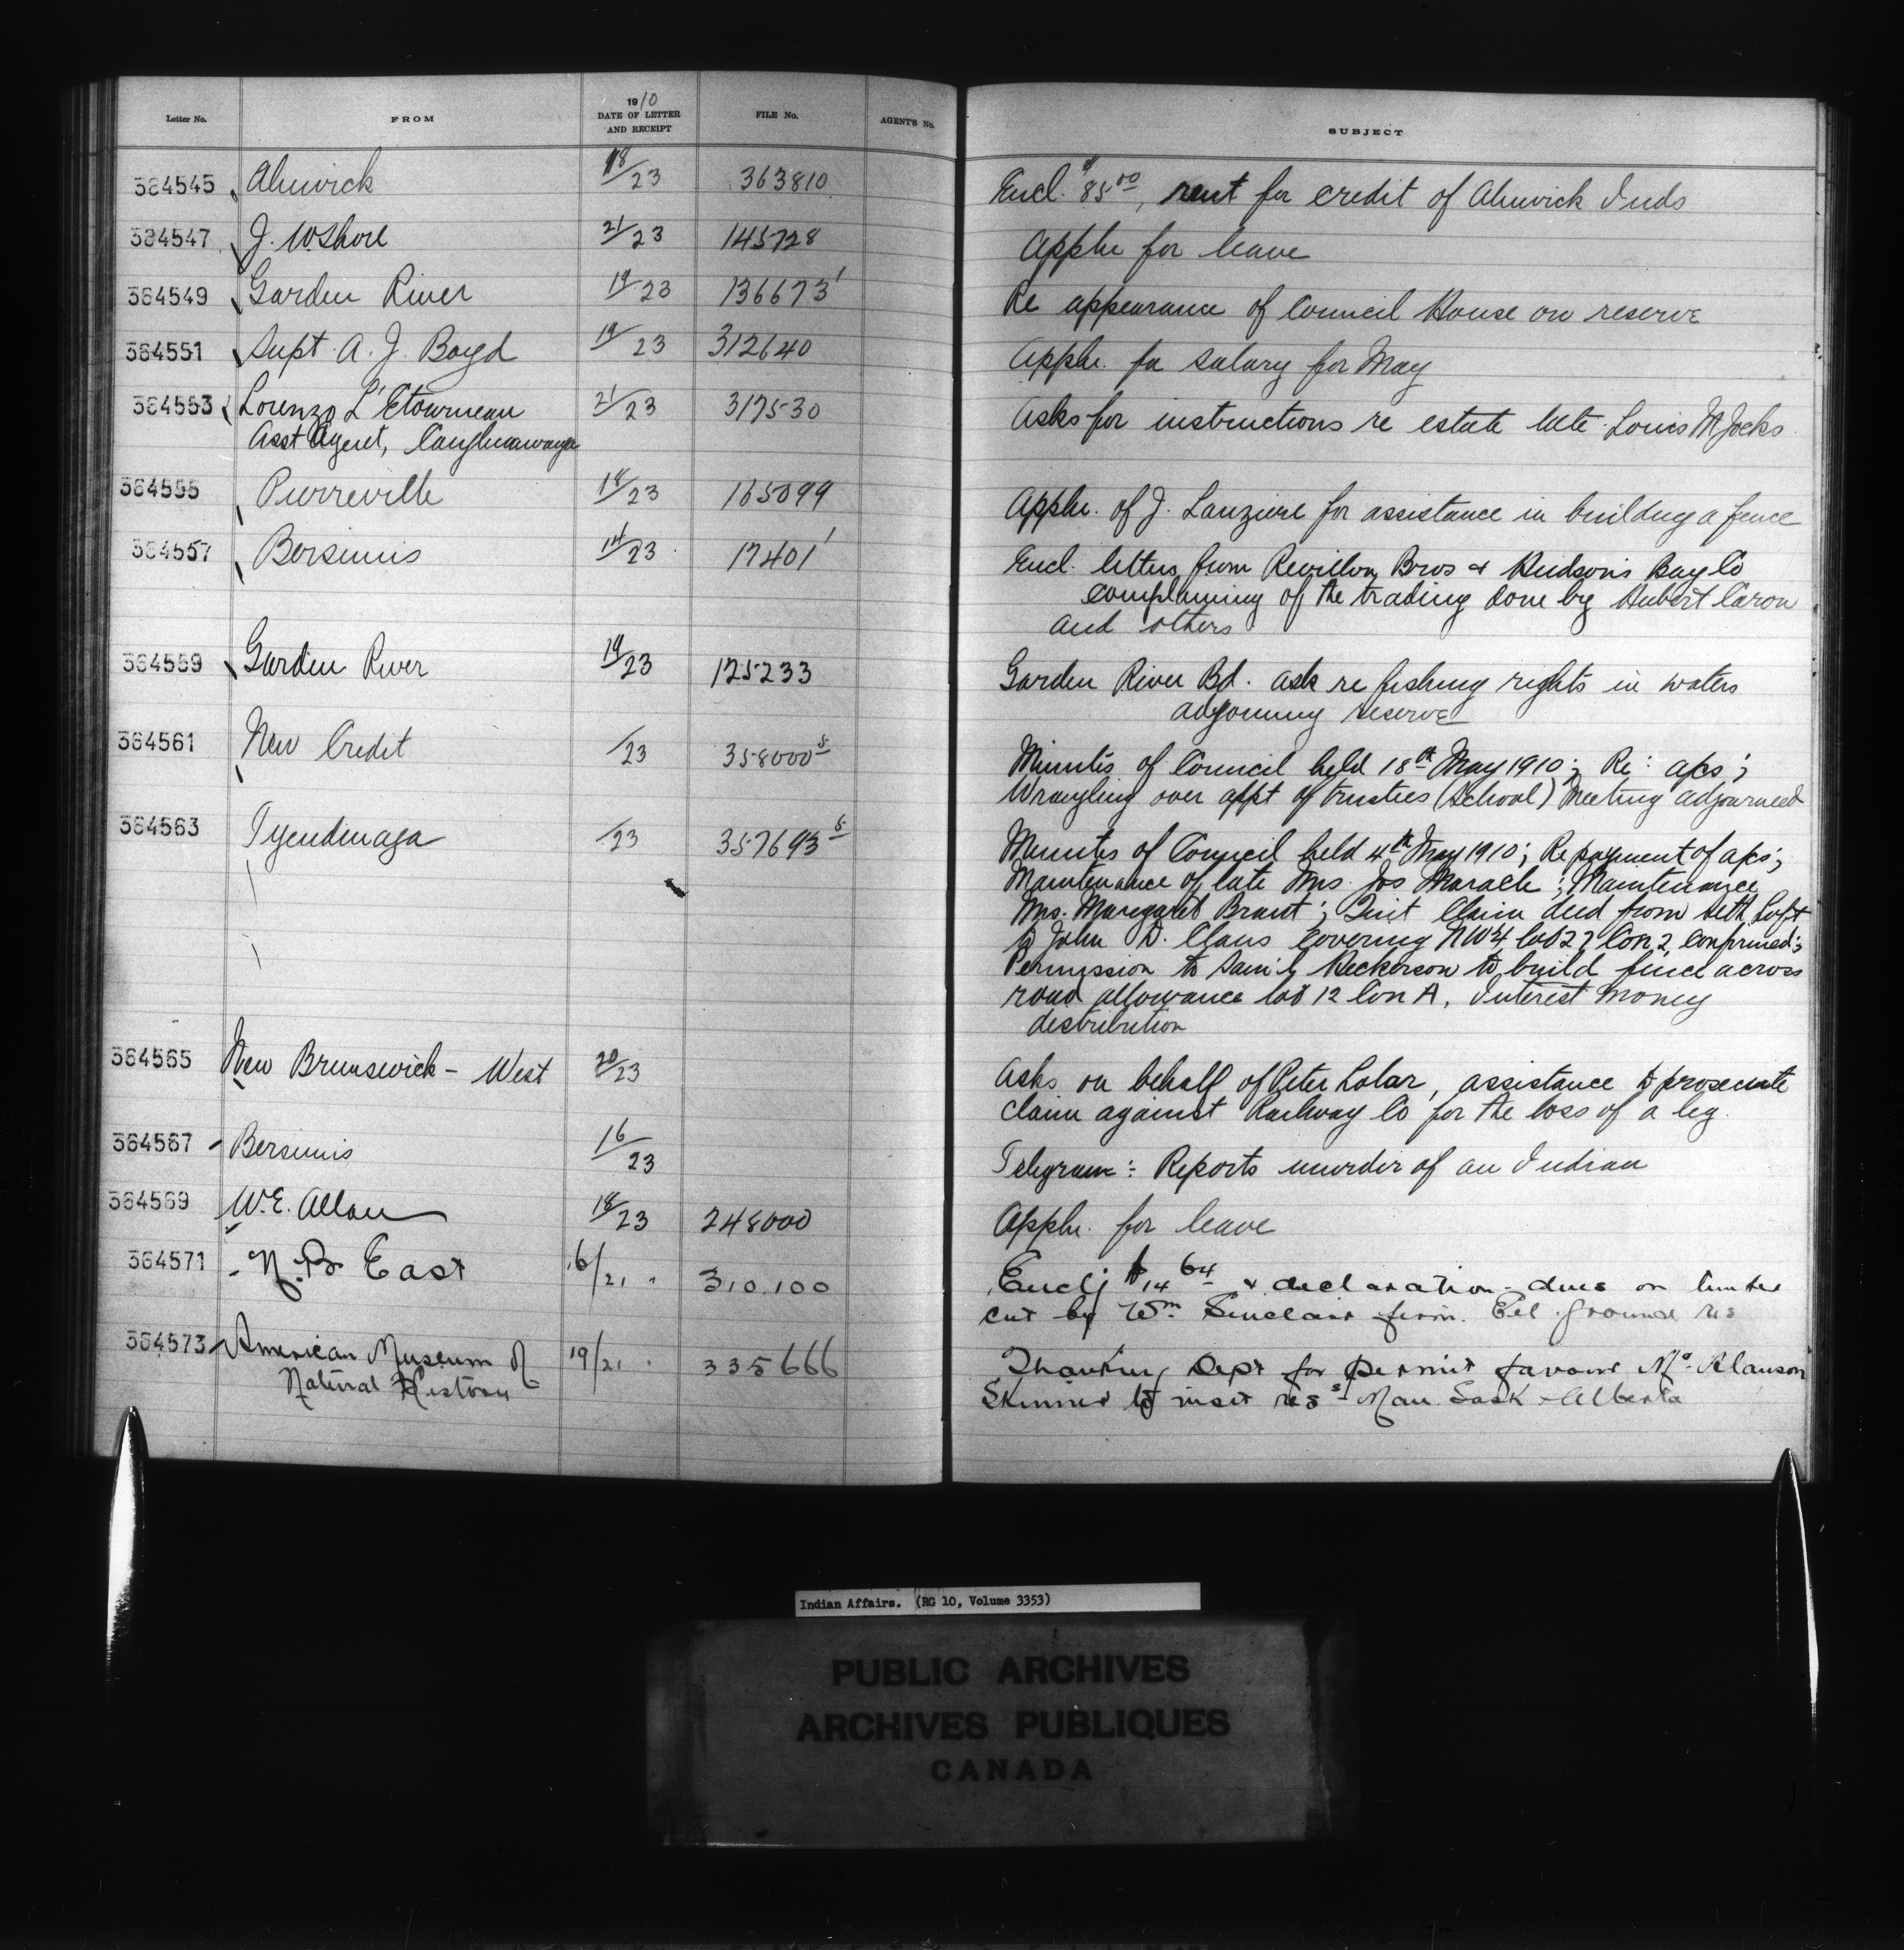 Letter No. FROM 1910 DATE OF LETTER AND RECEIPT FILE No. AGENT'S No. SUBJECT
364545 Alnwick 18/23 363810 Encl. $85.00, rent for credit of Alnwick Inds
364547 J. W. Shore 21/23 145728 Appln for leave
364549 Garden River 19/23 136673 1 Re appearance of Council House on reserve
364551 Supt. A. J. Boyd 19/23 312640 Appln. for salary for May
364553 Lorenzo L'Etourneau 21/23 317530 Asks for instructions re estate late Louis M. Jocks
Asst Agent, Caughnawaga
364555 Pierreville 18/23 165099 Appln. of J. Lanziere for assistance in building a fence
364557 Bersimis 14/23 17401 1 Encl. letters from Revillon Bros & Hudson's Bay Co
complaining of the trading done by Hubert Caron
and others
364559 Garden River 19/23 125233 Garden River Bd. ask re fishing rights in waters
adjoining reserve
364561 New Credit /23 358000 5 Minutes of Council held 18th May 1910; Re: a/cs;
Wrangling over appt of trustees (School) Meeting adjourned
364563 Tyendinaga /23 357693 5 Minutes of Council held 4th May 1910; Re payment of a/cs;
Maintenance of late Mrs. Jos Maracle; Maintenance
Mrs. Margaret Brant; Quit Claim deed from Seth Loft
to John D. Claus covering NW¼ lot 27 Con 2 confirmed;
Permission to Sam'l Keckerson to build fence across
road allowance lot 12 Con A, Interest money
distribution
364565 New Brunswick - West 20/23 Asks on behalf of Peter Lolar, assistance to prosecute
claim against Railway Co for the loss of a leg.
364567 Bersimis 16/23 Telegram: Reports murder of an Indian
364569 W. E. Allan 18/23 248000 Appln. for leave
364571 N. B. East 16/21 310.100 Enclg $14 64 & declaration - dues on timber
cut by Wm. Sinclair from Eel ground res
364573 American Museum of 19/21 335666 Thanking Dept for permit favour Mr. Alanson
Natural History Skinner to visit ress - Man. Sask & Alberta
Indian Affairs. (RG 10, Volume 3353)
PUBLIC ARCHIVES
ARCHIVES PUBLIQUES
CANADA